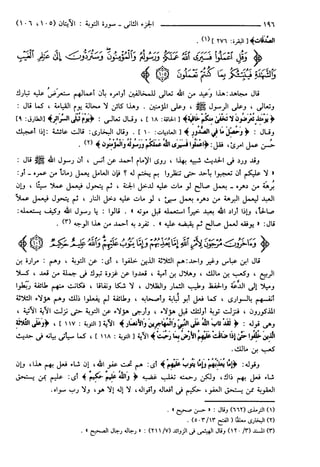 ١٩٦ الجزء الثاني - سورة التوبة : الآيتان (١٠٥، ١٠٦)
الصَّدَقَاتِ﴾ [البقرة: ٢٧٦] (١) .
﴿وَقُلِ اعْمَلُوا فَسَيَرَى اللَّهُ عَمَلَكُمْ وَرَسُولُهُ وَالْمُؤْمِنُونَ وَسَتُرَدُّونَ إِلَى عَالِمِ الْغَيْبِ
وَالشَّهَادَةِ فَيُنَبِّئُكُم بِمَا كُنتُمْ تَعْمَلُونَ﴾
قال مجاهد: هذا وَعِيد من الله تعالى للمخالفين أوامره بأن أعمالهم ستعرَض عليه تبارك
وتعالى ، وعلى الرسول ﷺ ، وعلى المؤمنين . وهذا كائن لا محالة يوم القيامة ، كما قال :
﴿يَوْمَئِذٍ تُعْرَضُونَ لَا تَخْفَى مِنكُمْ خَافِيَةٌ﴾ [الحاقة: ١٨] ، وقال تعالى : ﴿يَوْمَ تُبْلَى السَّرَائِرُ﴾ [الطارق: ٩]
وقال : ﴿وَحُصِّلَ مَا فِي الصُّدُورِ﴾ [العاديات: ١٠] . وقال البخارى: قالت عائشة : إذا أعجبك
حُسن عمل امرئ، فقل: ﴿اعْمَلُوا فَسَيَرَى اللَّهُ عَمَلَكُمْ وَرَسُولُهُ وَالْمُؤْمِنُونَ﴾ (٢) .
وقد ورد فى الحديث شبيه بهذا ، روى الإمام أحمد عن أنس ، أن رسول الله ﷺ قال :
« لا عليكم أن تعجبوا بأحد حتى تنظروا بم يختم له ؟ فإن العامل يعمل زماناً من عمره ـ أو:
بُرهَة من دهره ـ بعمل صالح لو مات عليه لدخل الجنة ، ثم يتحول فيعمل عملاً سيئاً ، وإن
العبد ليعمل البرهة من دهره بعمل سيئ ، لو مات عليه دخل النار ، ثم يتحول فيعمل عملاً
صالحاً، وإذا أراد الله بعبد خيراً استعمله قبل موته » . قالوا : يا رسول الله وكيف يستعمله:
قال : « يوفقه لعمل صالح ثم يقبضه عليه » . تفرد به أحمد من هذا الوجه (٣) .
﴿وَآخَرُونَ مُرْجَوْنَ لِأَمْرِ اللَّهِ إِمَّا يُعَذِّبُهُمْ وَإِمَّا يَتُوبُ عَلَيْهِمْ وَاللَّهُ عَلِيمٌ حَكِيمٌ﴾
قال ابن عباس وغير واحد: هم الثلاثة الذين خلفوا ، أى: عن التوبة ، وهم : مرارة بن
الربيع ، وكعب بن مالك ، وهلال بن أمية ، قعدوا عن غزوة تبوك فى جملة من قعد ، كسلا
وميلا إلى الدَّعَة والحفظ وطيب الثمار والظلال ، لا شكا ونفاقا ، فكانت منهم طائفة ربطوا
أنفسهم بالسوارى ، كما فعل أبو لُبابة وأصحابه ، وطائفة لم يفعلوا ذلك وهم هؤلاء الثلاثة
المذكورون ، فنزلت توبة أولئك قبل هؤلاء ، وأرجى هؤلاء عن التوبة حتى نزلت الآية الآتية ،
وهى قوله : ﴿لَقَد تَّابَ اللَّهُ عَلَى النَّبِيِّ وَالْمُهَاجِرِينَ وَالْأَنصَارِ﴾ الآية [ التوبة : ١١٧ ] ، ﴿وَعَلَى الثَّلَاثَةِ
الَّذِينَ خُلِّفُوا حَتَّى إِذَا ضَاقَتْ عَلَيْهِمُ الْأَرْضُ بِمَا رَحُبَتْ﴾ الآية [ التوبة: ١١٨ ] ، كما سيأتى بيانه فى حديث
كعب بن مالك.
وقوله: ﴿إِمَّا يُعَذِّبُهُمْ وَإِمَّا يَتُوبُ عَلَيْهِمْ﴾ أى: هم تحت عفو الله ، إن شاء فعل بهم هذا، وإن
شاء فعل بهم ذاك، ولكن رحمته تغلب غضبه ﴿وَاللَّهُ عَلِيمٌ حَكِيمٌ﴾ أى: عليم بمن يستحق
العقوبة ممن يستحق العفو، حكيم فى أفعاله وأقواله، لا إله إلا هو، ولا رب سواه.
(١) الترمذى (٦٦٢) وقال : « حسن صحيح » .
(٢) البخارى معلقاً ( الفتح ١٣/ ٥٠٣) .
(٣) المسند (٣/ ١٢٠) وقال الهيثمى فى الزوائد (٧/ ٢١١): « رجاله رجال الصحيح » .